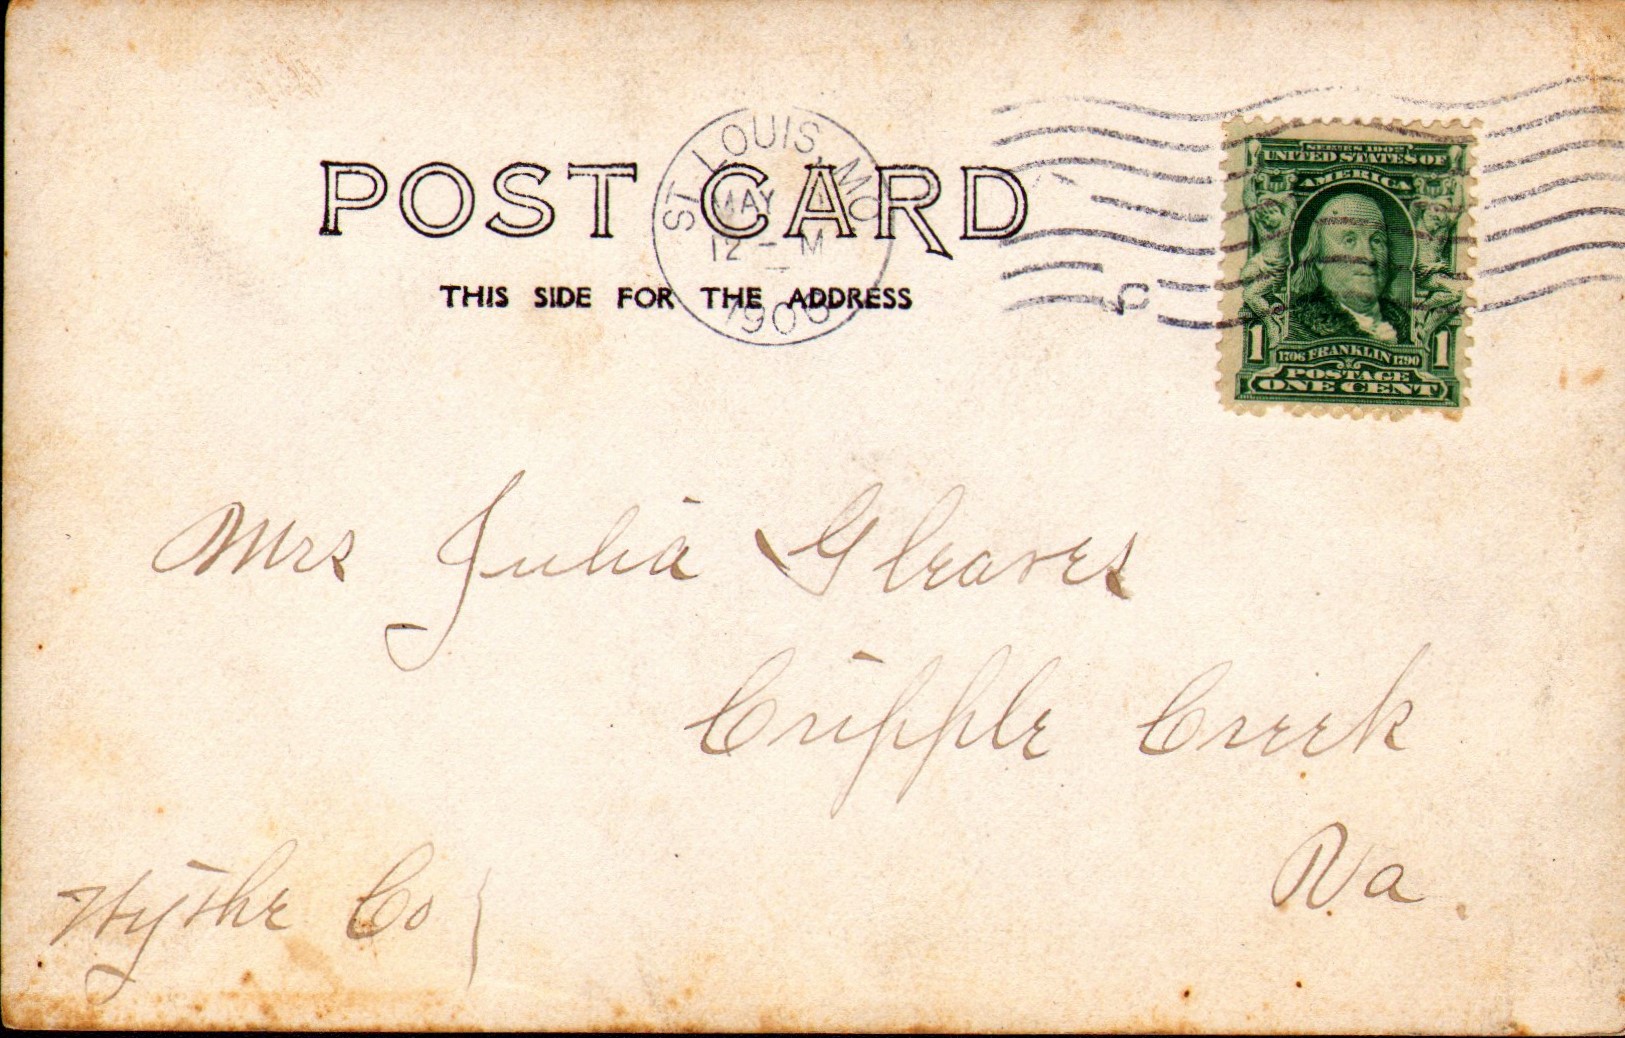 POST CARD
THIS SIDE FOR THE ADDRESS
ST. LOUIS, MO
MAY
12 - M
190
SERIES 1902
UNITED STATES OF
AMERICA
1 1706 FRANKLIN 1790 1
POSTAGE
ONE CENT
5
Mrs Julia Gleaves
Cripple Creek
Va.
Wythe Co